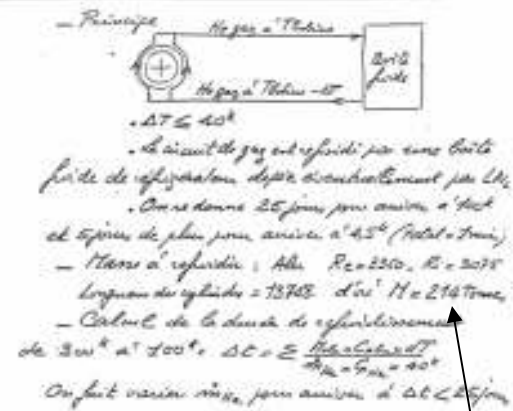 — Principe
He gaz à T bobine
Boîte froide
He gaz à T bobine - ΔT
. ΔT ≤ 40 K
. Le circuit de gaz est refroidi par une boîte
froide de réfrigérateur dopée éventuellement par LN2
. On se donne 25 jours pour arriver à 100 K
et 5 jours de plus pour arriver à 4,5 K (total = 1 mois)
— Masse à refroidir : Alu Re = 2350, Ri = 3075
Longueur des cylindres = 13708 d'où M = 214 Tonnes
— Calcul de la durée de refroidissement
de 300 K à 100 K. Δt = Σ
On fait varier ṁHe pour arriver à Δt < 25 jours